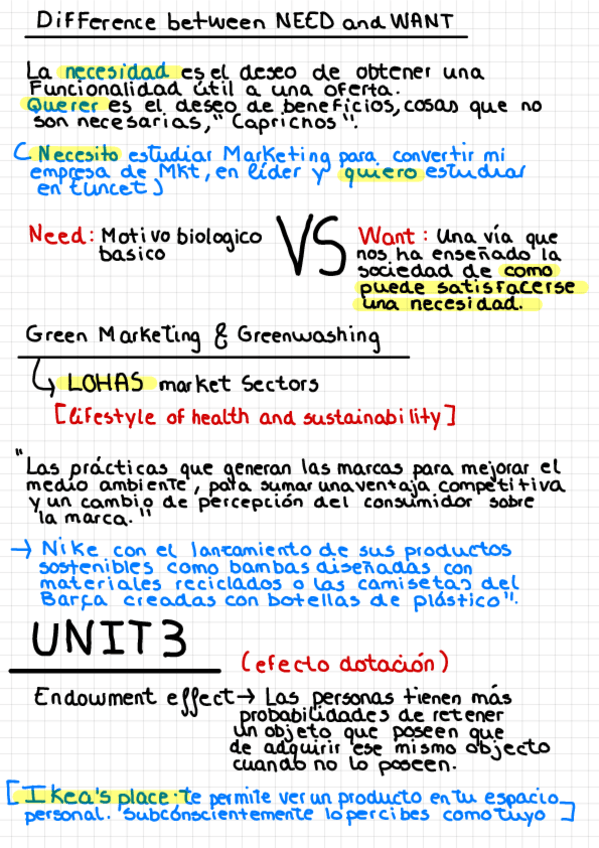 Difference between NEED and WANT
La necesidad es el deseo de obtener una
Funcionalidad útil a una oferta.
Querer es el deseo de beneficios, cosas que no
son necesarias, "Caprichos".
(Necesito estudiar Marketing para convertir mi
empresa de Mkt, en líder y quiero estudiar
en Euncet)
Need: Motivo biologico
basico
VS
Want: Una vía que
nos ha enseñado la
sociedad de como
puede satisfacerse
una necesidad.
Green Marketing & Greenwashing
↳ LOHAS market Sectors
[lifestyle of health and sustainability]
"Las prácticas que generan las marcas para mejorar el
medio ambiente, para sumar una ventaja competitiva
y un cambio de percepción del consumidor sobre
la marca."
→ Nike con el lanzamiento de sus productos
sostenibles como bambas diseñadas con
materiales reciclados o las camisetas del
Barça creadas con botellas de plástico".
UNIT 3
(efecto dotación)
Endowment effect → Las personas tienen más
probabilidades de retener
un objeto que poseen que
de adquirir ese mismo objecto
cuando no lo poseen.
[Ikea's place: te permite ver un producto en tu espacio
personal. Subconscientemente lo percibes como tuyo]